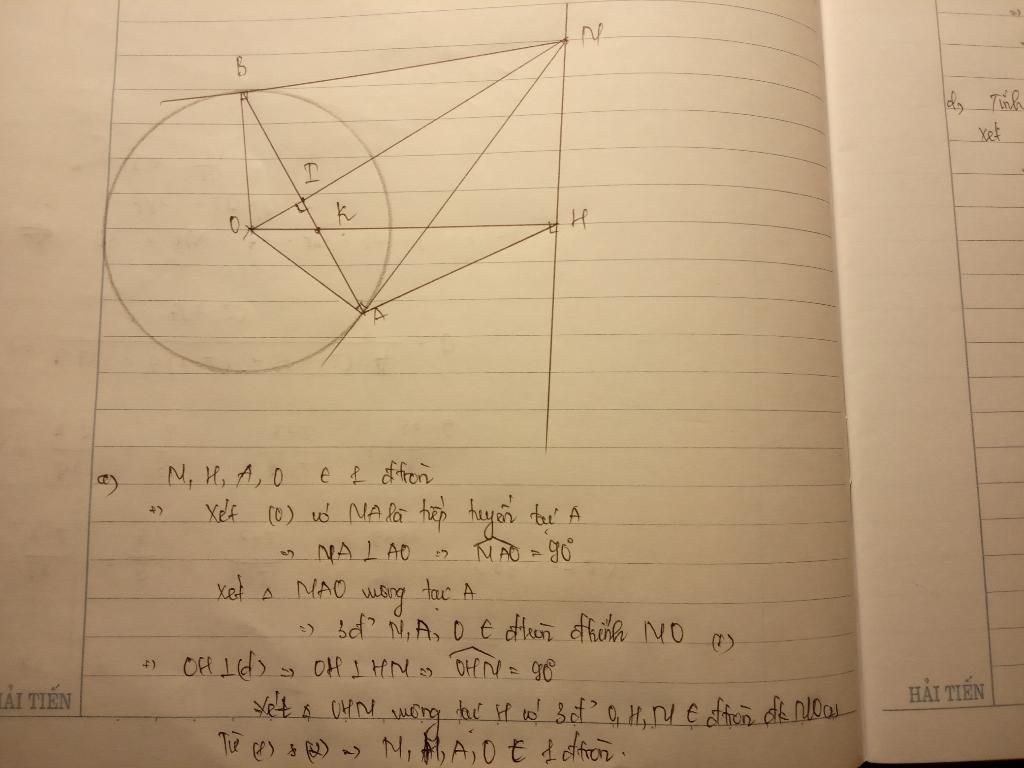 B
N
I
K
O
H
A
d, Tính
xét
a) N, H, A, O ∈ 1 đtròn
+) Xét (O) có NA là tiếp tuyến tại A
=> NA ⊥ AO => NAO = 90°
Xét △ NAO vuông tại A
=> 3đ' N, A, O ∈ đtròn đkính NO (1)
+) OH ⊥ (d) => OH ⊥ HN => OHN = 90°
Xét △ OHN vuông tại H có 3đ' O, H, N ∈ đtròn đk NO (2)
Từ (1) & (2) => N, H, A, O ∈ 1 đtròn.
HẢI TIẾN
ẢI TIẾN